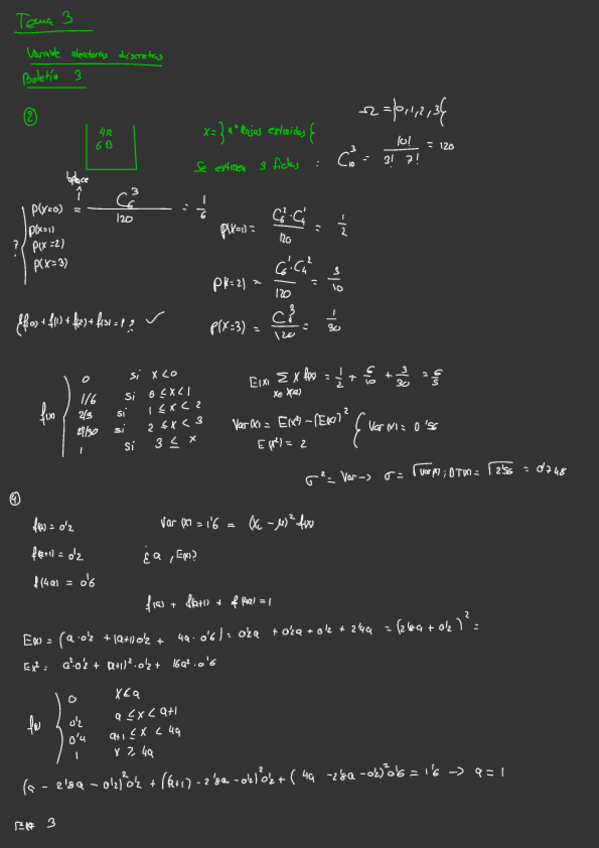 Tema 3
Variable aleatorias discretas
Boletín 3
②
4R
6B
X = } nº Rojas extraidas {
Ω = }0,1,2,3{
Se extraen 3 fichas : C₁₀³ = 10! / 3! 7! = 120
laplace
P(X=0) = C₆³ / 120 = 1/6
P(X=1)
? P(X=2)
P(X=3)
P(X=1) = C₆²·C₄¹ / 120 = 1/2
P(X=2) = C₆¹·C₄² / 120 = 3/10
P(X=3) = C₄³ / 120 = 1/30
¿f(0) + f(1) + f(2) + f(3) = 1? ✓
f(x)
0 si x<0
1/6 si 0≤x<1
2/3 si 1≤x<2
29/30 si 2≤x<3
1 si 3≤x
E(x) Σ x f(x) = 1/2 + 6/10 + 3/30 = 6/5
Var(x) = E(x²) - (E(x))² { Var(x) = 0'56
E(x²) = 2
σ² = Var → σ = √Var(x) ; DT(x) = √2'56 = 0'748
④
f(a) = 0'2
Var(x) = 1'6 = (xᵢ - μ)² f(x)
f(a+1) = 0'2
¿a, E(x)?
f(4a) = 0'6
f(a) + f(a+1) + f(4a) = 1
E(x) = (a·0'2 + (a+1)0'2 + 4a·0'6) = 0'2a + 0'2a + 0'2 + 2'4a = (2'8a + 0'2)² =
Ex² = a²·0'2 + (a+1)²·0'2 + 16a²·0'6
f(x)
0 x<a
0'2 a≤x<a+1
0'4 a+1≤x<4a
1 x≥4a
(a - 2'8a - 0'2)²0'2 + ((a+1) - 2'8a - 0'2)²0'2 + (4a - 2'8a - 0'2)²0'6 = 1'6 → a = 1
3